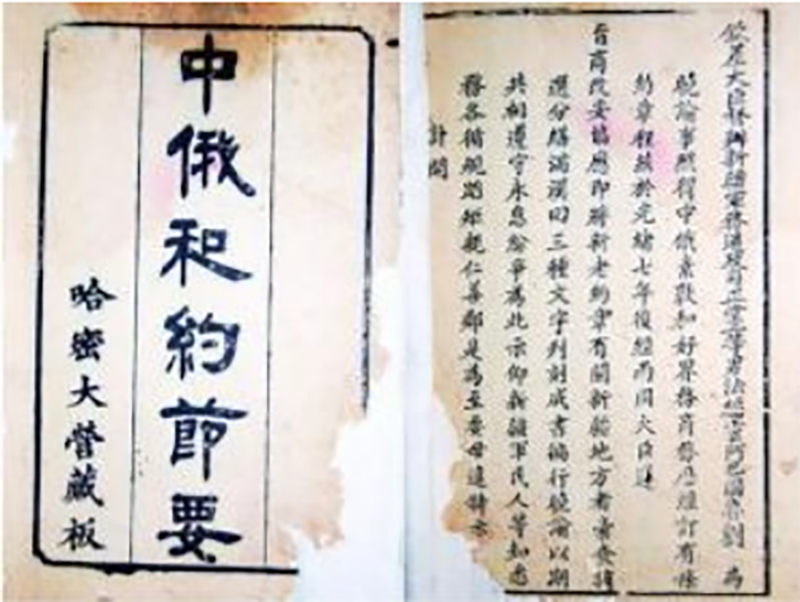 中俄和約節要
哈密大營藏板
欽差大臣督辦新疆軍務通政司正堂二等男法福靈阿巴圖魯劉 為
曉諭事照得中俄素敦和好界務商務歷經訂有條
約章程茲於光緒七年復經兩國大臣遵
旨商改妥協應即將新老約章有關新疆地方者摘
選分繕滿漢回三種文字刊刻成書徧行曉諭以期
共相遵守永息紛爭為此示仰新疆軍民人等知悉
務各循規蹈矩親仁善鄰是為至要毋違特示
計開